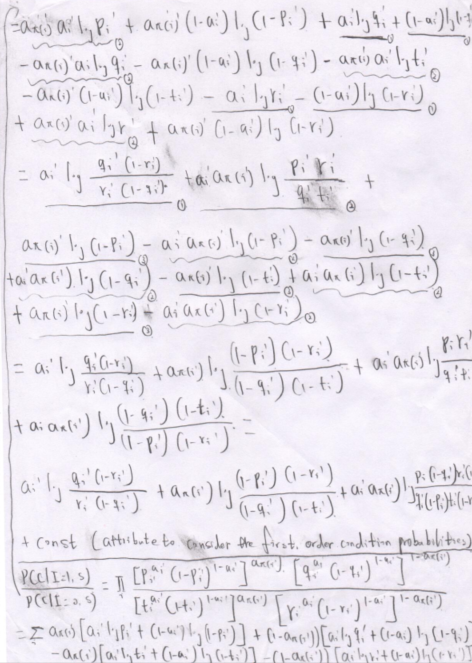 = aπ(i)' ai' log pi' + aπ(i)' (1-ai) log (1-pi') + ai log qi' + (1-ai) log
- aπ(i)' ai log qi - aπ(i)' (1-ai) log (1-qi') - aπ(i) ai' log ti'
- aπ(i)' (1-ai') log (1-ti') - ai log ri' - (1-ai') log (1-ri')
+ aπ(i)' ai' log ri' + aπ(i)' (1-ai) log (1-ri')
= ai' log qi' (1-ri) / ri' (1-qi) + ai aπ(i) log pi' ri' / qi' ti' +
aπ(i)' log (1-pi') - ai aπ(i) log (1-pi') - aπ(i)' log (1-qi')
+ ai aπ(i') log (1-qi') - aπ(i) log (1-ti) + ai aπ(i) log (1-ti')
+ aπ(i) log (1-ri) - ai aπ(i') log (1-ri)
= ai' log qi (1-ri) / ri' (1-qi) + aπ(i) log (1-pi') (1-ri) / (1-qi') (1-ti') + ai' aπ(i) log pi ri' / qi' ti
+ ai aπ(i') log (1-qi') (1-ti') / (1-pi') (1-ri') =
ai' log qi' (1-ri') / ri' (1-qi) + aπ(i') log (1-pi') (1-ri') / (1-qi) (1-ti') + ai aπ(i') log pi (1-qi) ri
+ const (attribute to consider the first order condition probabilities)
P(C|I=1,S) / P(C|I=2,S) = Π [pi^ai' (1-pi')^1-ai']^aπ(i') [qi^ai (1-qi')^1-ai']^1-aπ(i) / [ti^ai' (1-ti')^1-ai']^aπ(i') [ri^ai' (1-ri')^1-ai]^1-aπ(i')
= Σ aπ(i) [ai' log pi' + (1-ai') log (1-pi')] + (1-aπ(i')) [ai' log qi' + (1-ai) log (1-qi')]
- aπ(i) [ai' log ti + (1-ai) log (1-ti)] - (1-aπ(i)) [ai' log ri + (1-ai) log (1-ri)]